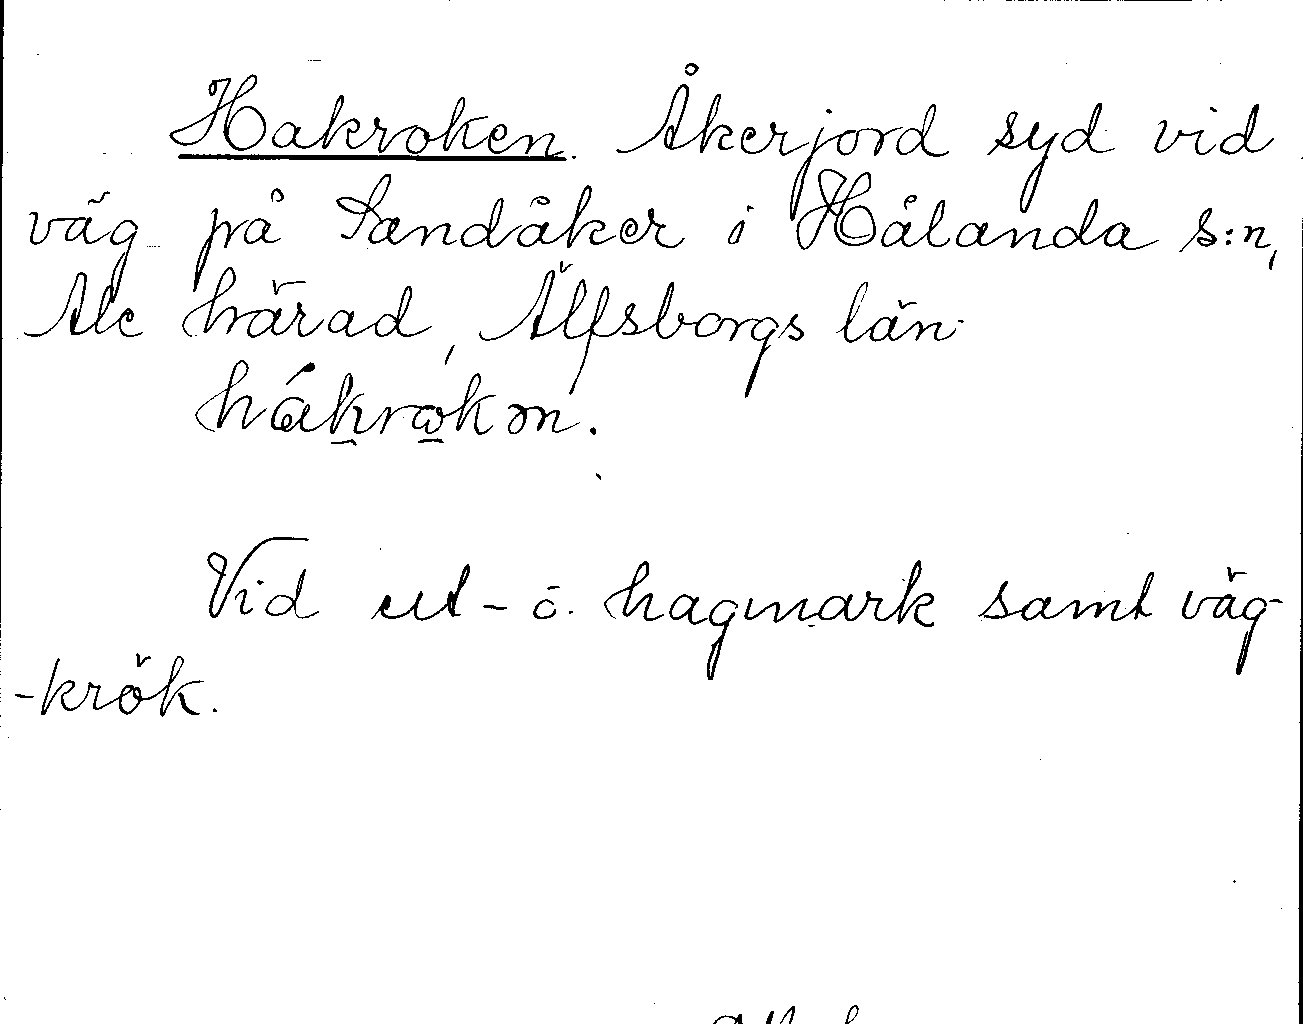 Hakroken. Åkerjord syd vid
väg på Sandåker i Hålanda s:n,
Ale härad, Älfsborgs län.
Vid ut- o. hagmark samt väg-
-krök.